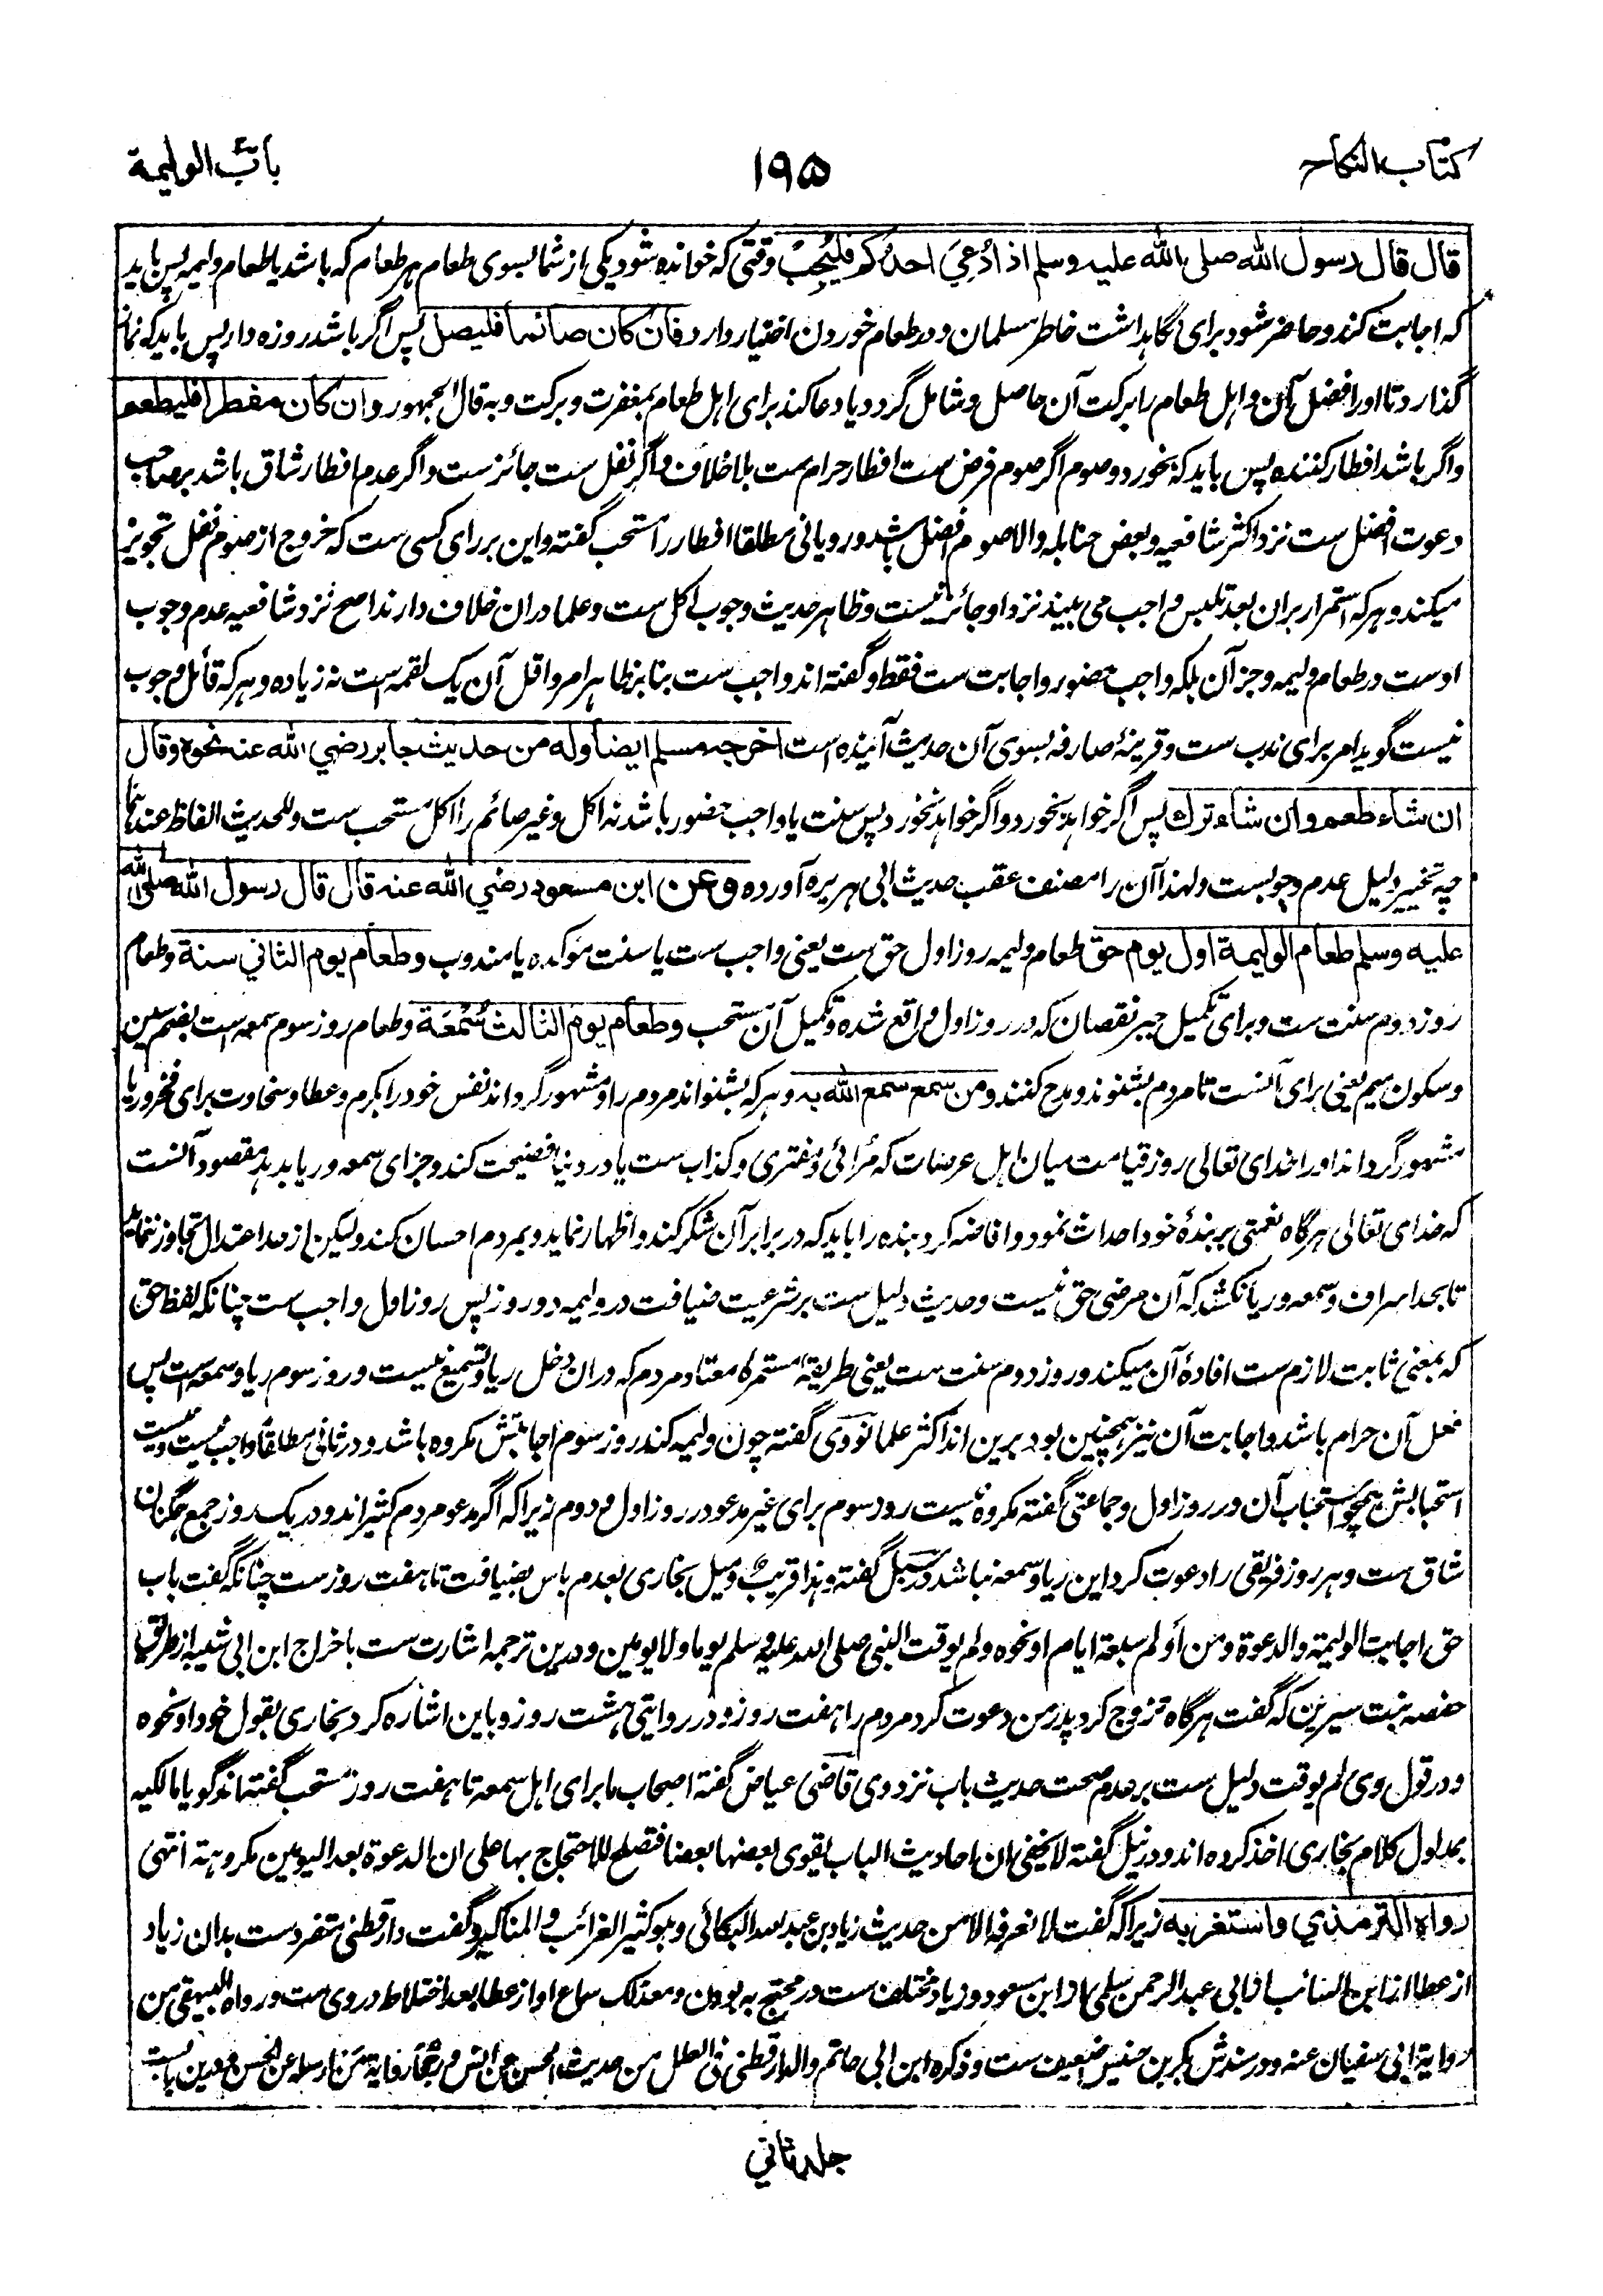 كتاب النكاح
١٩٥
باب الوليمة
قال قال رسول الله صلى الله عليه وسلم اذا دُعِيَ احدكم فليُجِبْ وقتی که خوانده شود یکی از شما بسوی طعام هر طعام که باشد یا طعام ولیمه پس باید
که اجابت کند و حاضر شود برای نگاهداشت خاطر مسلمان و در طعام خوردن اختیار دارد فان كان صائما فليصل پس اگر باشد روزه دار پس باید که نماز
گذارد تا او را فضل آن و اهل طعام را برکت آن حاصل و شامل گردد یا دعا کند برای اهل طعام بمغفرت و برکت و به قال الجمهور وان كان مفطرا فليطعم
و اگر باشد افطار کننده پس باید که بخورد و صوم اگر صوم فرض ست افطار حرام ست بلا خلاف و اگر نفل ست جائز ست و اگر عدم افطار شاق باشد بر صاحب
دعوت افضل ست نزد اکثر شافعیه و بعض حنابله والا صوم افضل باشد و رویانی مطلقا افطار را مستحب گفته و این بر رای کسی ست که خروج از صوم نفل تجویز
میکند و هر که استمرار بران بعد تلبس واجب می بیند نزد او جائز نیست و ظاهر حدیث وجوب اکل ست و علما دران خلاف دارند اصح نزد شافعیه عدم وجوب
اوست در طعام ولیمه و جز آن بلکه واجب حضور و اجابت ست فقط و گفته اند واجب ست بنا بر ظاهر امر و اقل آن یک لقمه است نه زیاده و هر که قائل وجوب
نیست گوید امر برای ندب ست و قرینهٔ صارفه بسوی آن حدیث آینده است اخرجه مسلم ايضا وله من حديث جابر رضي الله عنه نحوه وقال
ان شاء طعم وان شاء ترك پس اگر خواهد بخورد و اگر خواهد نخورد پس سنت یا واجب حضور باشد نه اکل و غیر صائم را اکل مستحب ست و للحدیث الفاظ عندهما
چه تخییر دلیل عدم وجوبست و لهذا آن را مصنف عقب حدیث ابی هریره آورده وعن ابن مسعود رضي الله عنه قال قال رسول الله صلى الله
عليه وسلم طعام الوليمة اول يوم حق طعام ولیمه روز اول حق ست یعنی واجب ست یا سنت موکده یا مندوب وطعام يوم الثاني سنة و طعام
روز دوم سنت ست و برای تکمیل جبر نقصان که در روز اول واقع شده و تکمیل آن مستحب وطعام يوم الثالث سُمْعَة و طعام روز سوم سمعه است بضم سین
و سکون میم یعنی برای آنست تا مردم بشنوند و مدح کنند ومن سمع سمع الله به و هر که بشنواند مردم را و مشهور گرداند نفس خود را بکرم و عطا و سخاوت برای فخر و ریا
مشهور گرداند او را خدای تعالی روز قیامت میان اهل عرصات که مرائی و مفتری و کذاب ست یا در دنیا فضیحت کند و جزای سمعه و ریا بدهد مقصود آنست
که خدای تعالی هرگاه نعمتی بر بندهٔ خود احداث نمود و افاضه کرد بنده را باید که در برابر آن شکر کند و اظهار نماید و بمردم احسان کند ولیکن از حد اعتدال تجاوز ننماید
تا بحد اسراف و سمعه و ریا نکشد که آن مرضی حق نیست و حدیث دلیل ست بر شرعیت ضیافت در ولیمه دو روز پس روز اول واجب ست چنانکه لفظ حق
که بمعنی ثابت لازم ست افادهٔ آن میکند و روز دوم سنت ست یعنی طریقه مستمره معتاد مردم که دران دخل ریا و تسمیع نیست و روز سوم ریا و سمعه است پس
فعل آن حرام باشد و اجابت آن نیز همچنین بود برین اند اکثر علما نووی گفته چون ولیمه کند روز سوم اجابتش مکروه باشد و در ثانی مطلقا واجب نیست و نیست
استحبابش همچو استحباب آن در روز اول و جماعتی گفته مکروه نیست روز سوم برای غیر مدعو در روز اول و دوم زیرا که اگر مدعو مردم کثیر اند و در یک روز جمع جمله آن
شاق ست و هر روز فریقی را دعوت کرد این ریا و سمعه نباشد در سبل گفته و هذا قریب و میل بخاری بعدم باس بضیافت تا هفت روز ست چنانکه گفت باب
حق اجابت الولیمة والدعوة ومن أولم سبعة ایام او نحوه ولم یوقت النبی صلی الله علیه وسلم یوما ولا یومین و درین ترجمه اشارت ست باخراج ابن ابی شیبه از طریق
حفصه بنت سیرین که گفت هرگاه تزوج کرد پدر من دعوت کرد مردم را هفت روز و در روایتی هشت روز و باین اشاره کرد بخاری بقول خود او نحوه
و در قول وی لم یوقت دلیل ست بر عدم صحت حدیث باب نزد وی قاضی عیاض گفته اصحاب ما برای اهل سمعه تا هفت روز مستحب گفته اند گویا مالکیه
بمدلول کلام بخاری اخذ کرده اند و در نیل گفته لا یخفی ان احادیث الباب یقوی بعضها بعضا فتصلح للاحتجاج بها علی ان الدعوة بعد الیومین مکروهة انتهی
رواه الترمذي واستغربه زیرا که گفت لا نعرفه الا من حدیث زیاد بن عبد الله البکائی وهو کثیر الغرائب والمناکیر و گفت دارقطنی متفرد ست بدان زیاد
از عطا از ابن السائب از ابی عبد الرحمن سلمی از ابن مسعود و زیاد مختلف ست در محتج به بودن و معذلک سماع او از عطا بعد اختلاط در وی ست و رواه البیهقی من
روایة ابی سفیان عنه و در سندش بکر بن خنیس ضعیف ست و ذکره ابن ابی حاتم والدارقطنی فی العلل من حدیث الحسن عن انس و رجحا روایة من ارسله عن الحسن
جلد ثاني